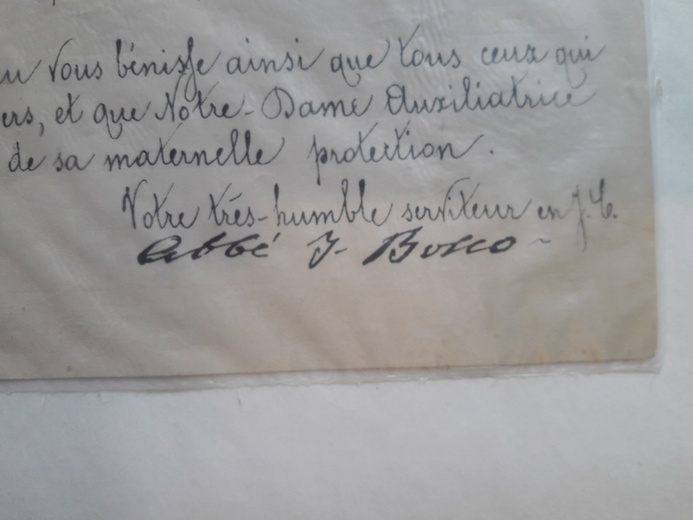 vous bénisse ainsi que tous ceux qui
ers, et que Notre-Dame Auxiliatrice
de sa maternelle protection.
Votre très-humble serviteur en J. C.
Abbé J. Bosco